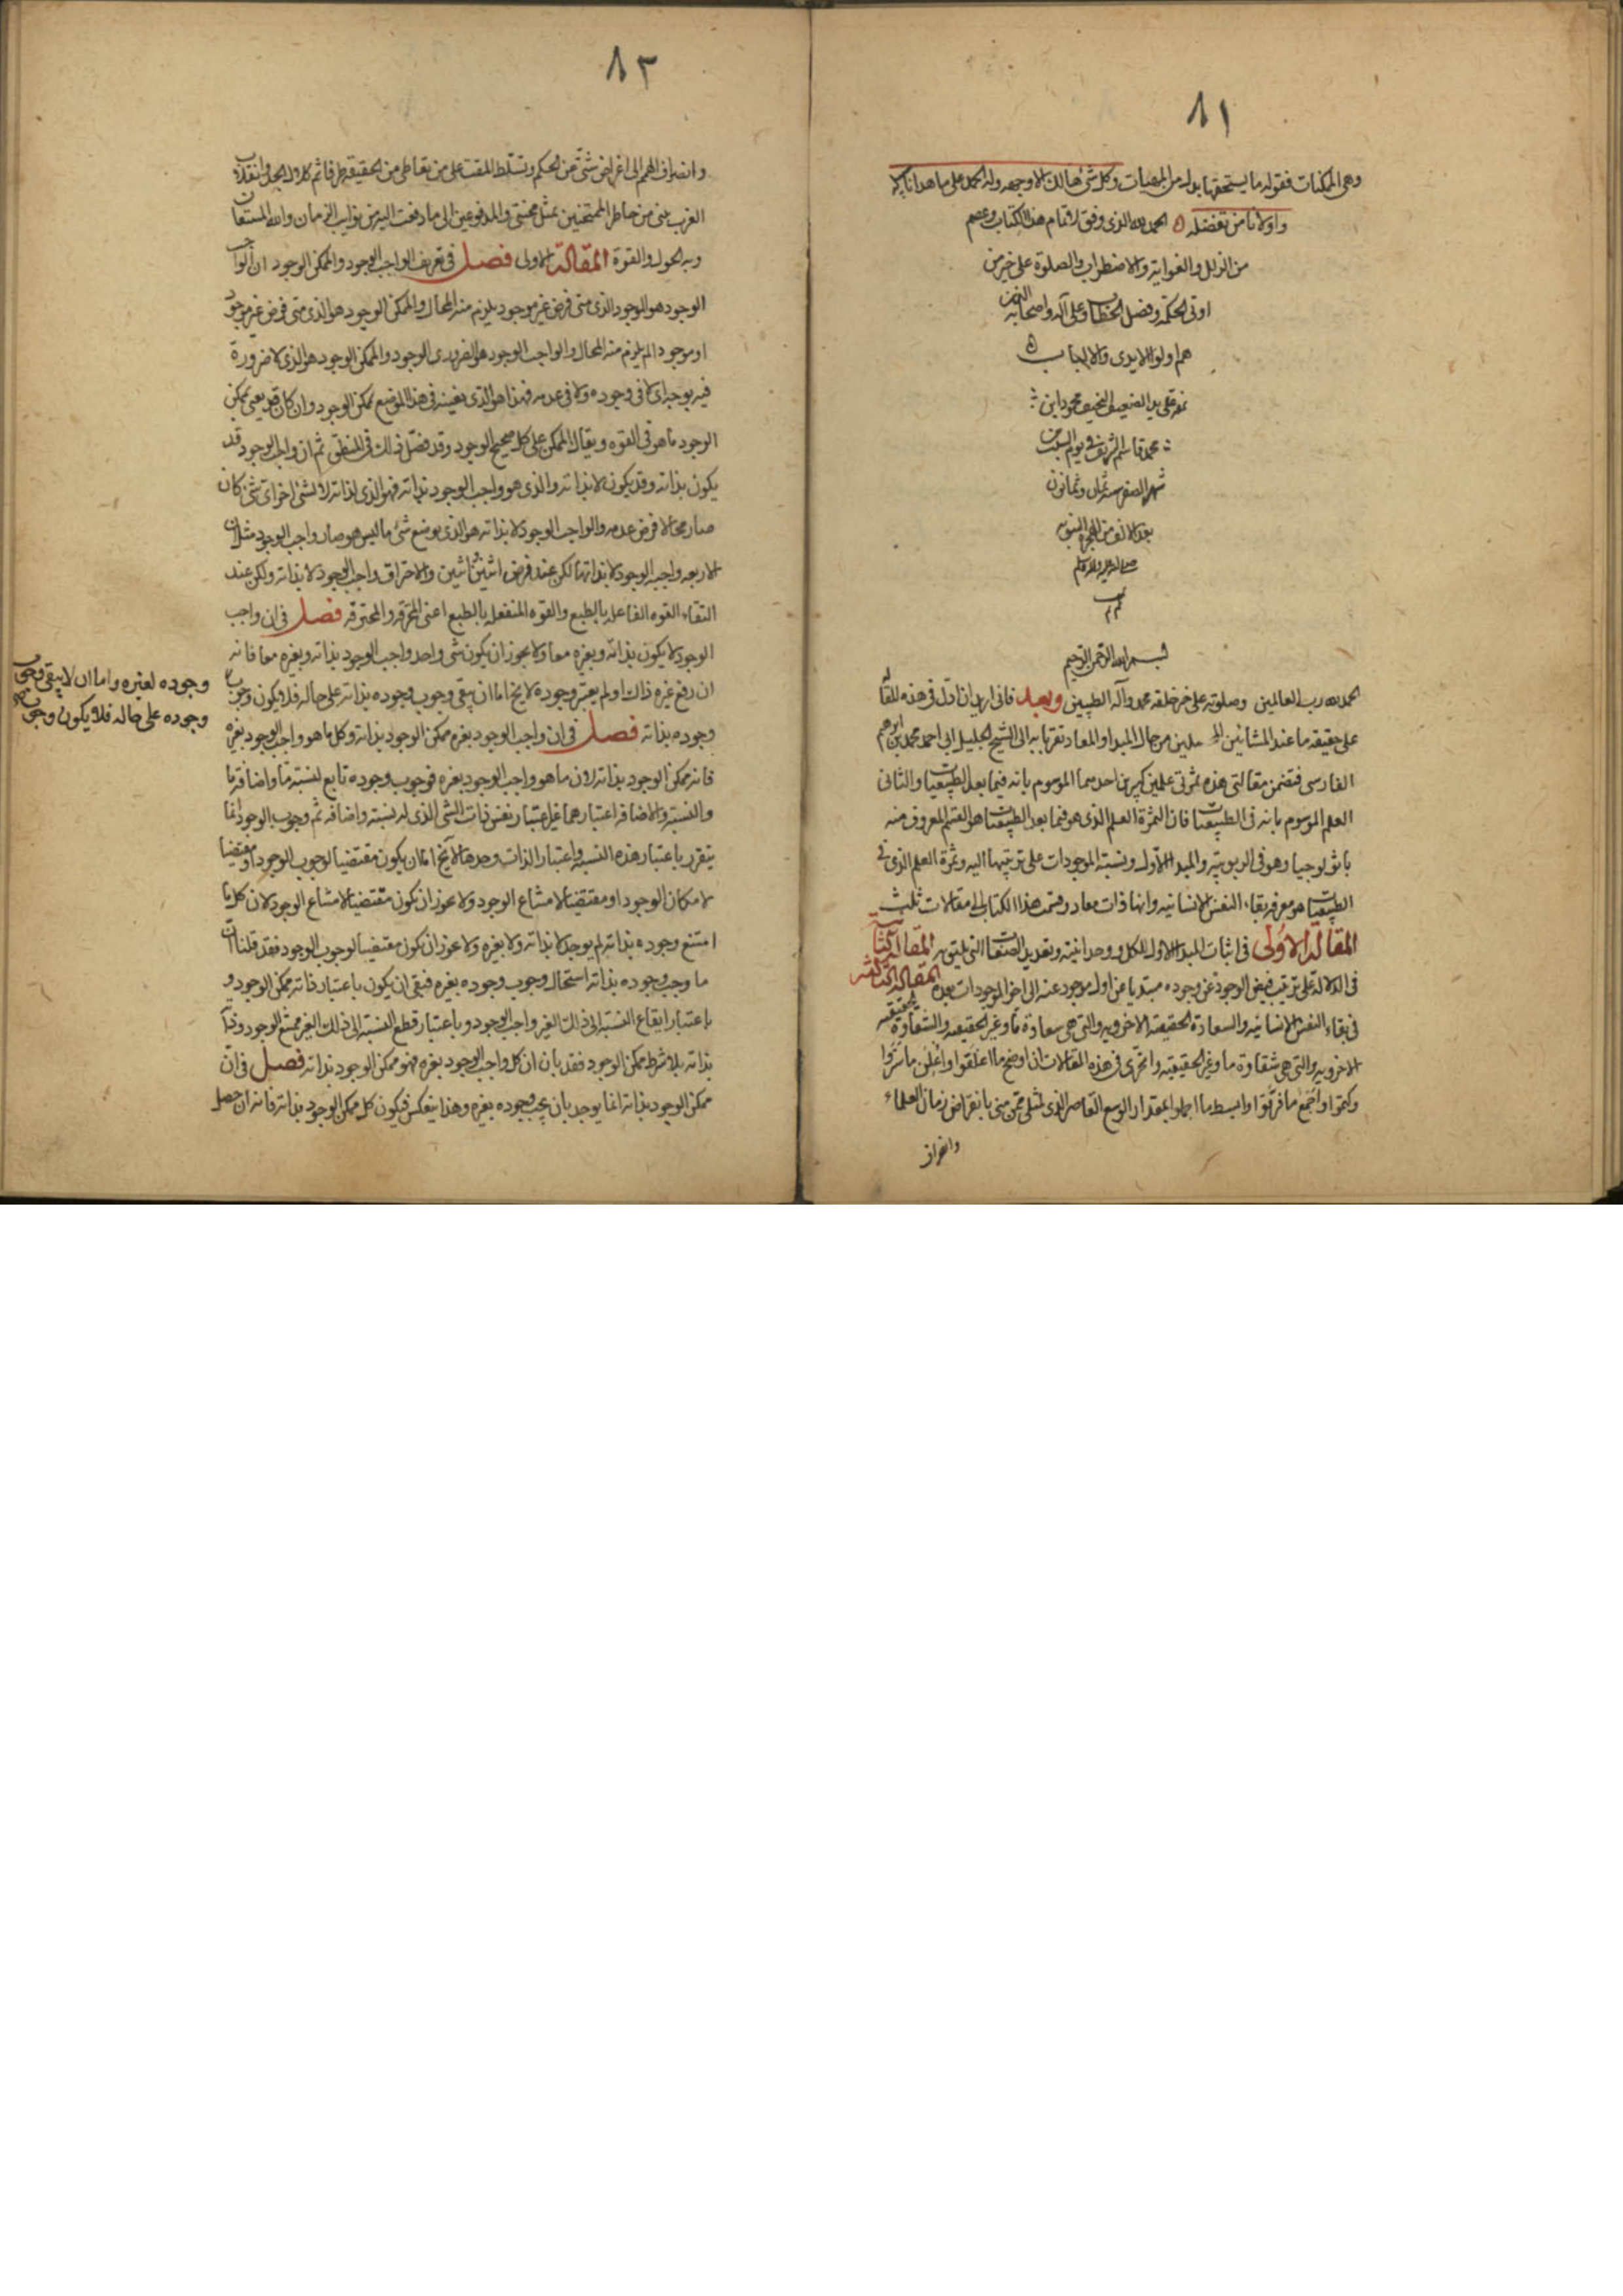 ٨١
وهى الممكنات فقوله ما يستحقها بدله من المهيات وكل شئ هالك الا وجهه وله الحمد على ما هدانا
واولانا من تفضله ه الحمد لله الذى وفق لاتمام هذا الكتاب وعصم
من الزلل والغواية والاضطراب والصلوة على خير من
اوتى الحكمة وفصل الخطاب وعلى آله واصحابه الذين
هم اولوا الايدى والالباب ه
تم على يد الضعيف النحيف محمود ابن
محمد قاسم الشريف فى يوم السبت من
شهر الصفر سنة ثمان وثمانون
بعد الالف من الهجرة النبويه
تم
بسم الله الرحمن الرحيم
الحمد لله رب العالمين وصلوته على خير خلقه محمد وآله الطيبين وبعد فانى اريد ان ادل فى هذه المقالة
على حقيقه ما عند المشائين المحصلين من حال المبدا والمعاد تقربا به الى الشيخ الجليل ابى احمد محمد بن ابراهيم
الفارسى فتضمن مقالتى هذه ثمرتى علمين كبيرين احدهما الموسوم بانه فيما بعد الطبيعيات والثانى
العلم الموسوم بانه فى الطبيعيات فان الثمرة العلم الذى هو فيما بعد الطبيعيات هو القسم المعروف منه
باثولوجيا وهو فى الربوبية والمبدا الاول ونسبة الموجودات على ترتيبها اليه وثمرة العلم الذى فى
الطبيعيات هو معرفة بقاء النفس الانسانيه وانها ذات معاد وقسمت هذا الكتاب الى مقالات ثلث
المقالة الاولى فى اثبات المبدا الاول للكل ووحدانيته وتعديد الصفات التى تليق به المقالة الثانية
فى الدلالة على ترتيب فيض الوجود عن وجوده مبتديا عن اول موجود عنه الى اخر الموجودات بعده المقالة الثالثة
فى بقاء النفس الانسانيه والسعادة الحقيقية الاخرويه والتى هى سعادة ما وغير الحقيقيه والشقاوة الحقيقيه
الاخرويه والتى هى شقاوة ما وغير الحقيقيه واتحرى فى هذه المقالات ان اوضح ما اغلقوا واعلن ما ستروا
وكتموا واجمع ما فرقوا وابسط ما اجملوا بمقدار الوسع القاصر الذى لمثلى ممن منى بانقراض زمان العلماء
وانصراف
٨٢
وانصراف الهمم الى اغراض شتى عن الحكم وتسلط المقت على من تعاطى من الحقيقة طرفا ثم كلال الحد وانفلات
الغرب منى من خاطر الممتحنين بمثل محنتى والمدفوعين الى ما دفعت اليه من نوايب الزمان والله المستعان
وبه الحول والقوة المقالة الاولى فصل فى تعريف الواجب الوجود والممكن الوجود ان الواجب
الوجود هو الموجود الذى متى فرض غير موجود يلزم منه المحال والممكن الوجود هو الذى متى فرض غير موجود
او موجودا لم يلزم منه المحال والواجب الوجود هو الضرورى الوجود والممكن الوجود هو الذى لا ضرورة
فيه بوجه اى لا فى وجوده ولا فى عدمه فهذا هو الذى نعينه فى هذا الموضع بممكن الوجود وان كان قد يعنى بممكن
الوجود ما هو فى القوه ويقال الممكن على كل صحيح الوجود وقد فصل ذلك فى المنطق ثم ان واجب الوجود قد
يكون بذاته وقد يكون لا بذاته والذى هو واجب الوجود بذاته فهو الذى لذاته لا لشئ اخر اى شئ كان
صار محالا فرض عدمه والواجب الوجود لا بذاته هو الذى بوضع شئ ما ليس هو صار واجب الوجود مثل ان
الاربعه واجبه الوجود لا بذاتها لكن عند فرض اثنين واثنين والاحتراق واجب الوجود لا بذاته ولكن عند
التقاء القوه الفاعله بالطبع والقوه المنفعله بالطبع اعنى المحرقة والمحترقه فصل فى ان واجب
الوجود لا يكون بذاته وبغيره معا ولا يجوز ان يكون شئ واحد واجب الوجود بذاته وبغيره معا فانه
ان رفع غيره ذاك او لم يعتبر وجوده لا يخ اما ان يبقى وجوب وجوده بذاته على حاله فلا يكون وجوب
وجوده بذاته فصل فى ان واجب الوجود بغيره ممكن الوجود بذاته وكل ما هو واجب الوجود بغيره
فانه ممكن الوجود بذاته لان ما هو واجب الوجود بغيره فوجوب وجوده تابع لنسبة ما واضافة ما
والنسبة والاضافه اعتبارهما غير اعتبار نفس ذات الشئ الذى له نسبة واضافه ثم وجوب الوجود انما
يتقرر باعتبار هذه النسبة واعتبار الذات وحدها لا يخ اما ان يكون مقتضيا لوجوب الوجود او مقتضيا
لامكان الوجود او مقتضيا لامتناع الوجود ولا يجوز ان يكون مقتضيا لامتناع الوجود لان كل ما
امتنع وجوده بذاته لم يوجد لا بذاته ولا بغيره ولا يجوز ان يكون مقتضيا لوجوب الوجود فقد قلنا ان
ما وجب وجوده بذاته استحال وجوب وجوده بغيره فبقى ان يكون باعتبار ذاته ممكن الوجود و
باعتبار ايقاع النسبة الى ذلك الغير واجب الوجود وباعتبار قطع النسبة الى ذلك الغير ممتنع الوجود وذاته
بذاته بلا شرط ممكن الوجود فقد بان ان كل واجب الوجود بغيره فهو ممكن الوجود بذاته فصل فى ان
ممكن الوجود بذاته انما يوجد بان يجب وجوده بغيره وهذا ينعكس فيكون كل ممكن الوجود بذاته فانه ان حصل
وجوده لغيره واما ان لا يبقى وجوب
وجوده على حاله فلا يكون وجوب